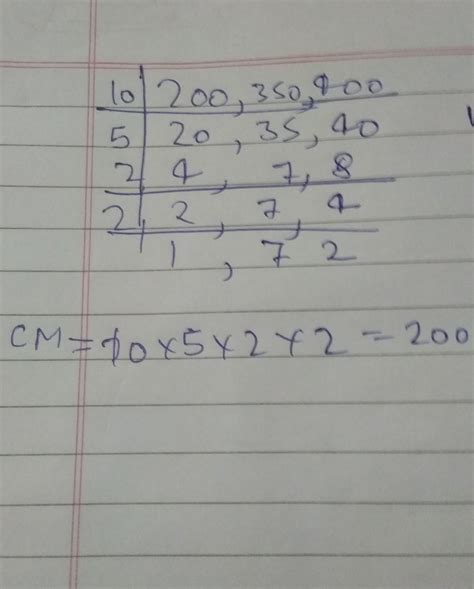 10 200, 350, 400
5 20, 35, 40
2 4, 7, 8
2 2, 7, 4
1, 7 2
CM = 10 x 5 x 2 x 2 = 200